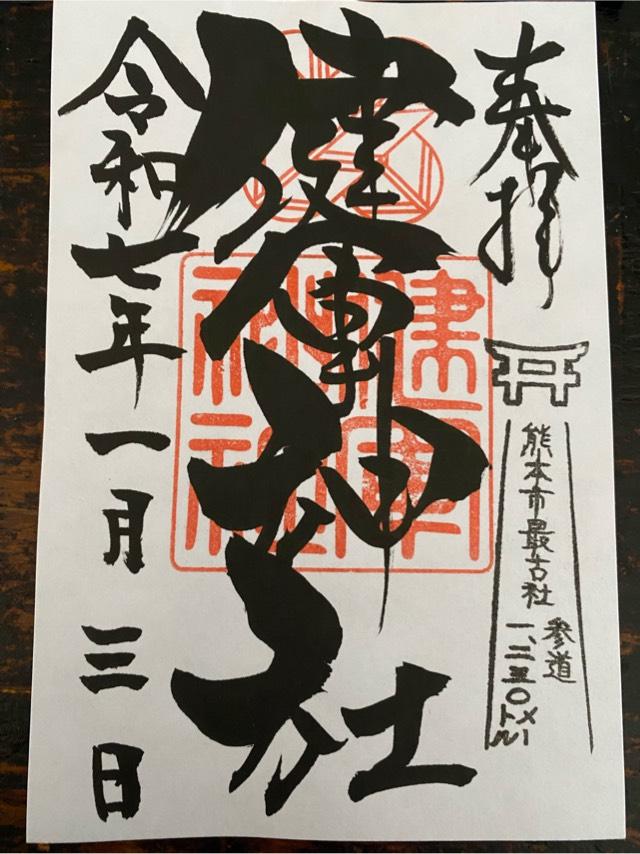 奉拝
健軍神社
熊本市最古社
参道
一、二五〇メートル
令和七年一月三日
健軍神社